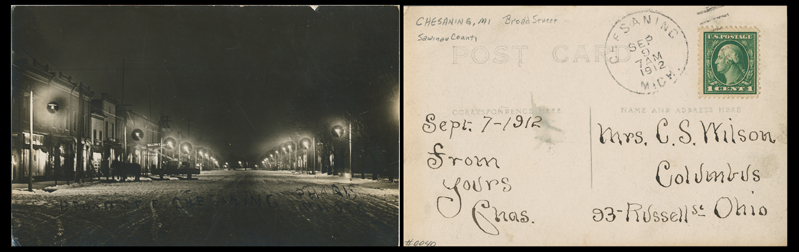 CHESANING, MI Broad Street
Saginaw County
POST CARD
CHESANING
SEP
9
7AM
1912
MICH.
U.S. POSTAGE
1 CENT 1
CORRESPONDENCE HERE
NAME AND ADDRESS HERE
Sept. 7-1912
From
Yours
Chas.
Mrs. C. S. Wilson
Columbus
93-Russell St Ohio